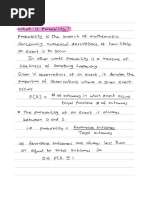 What is Probability?
Probability is the branch of mathematics
concerning numerical descriptions of how likely
an event is to occur
In other words probability is a measure of
likeliness of something happening
Given N observations of an event, it denotes the
proportion of observations where a given event
occurs
P[E] = # of outcomes in which event occurs
total possible # of outcomes
* The probability of an event is always
between 0 and 1
i.e. probability = Favourable outcomes
Total outcomes
as favourable outcomes are always less than
or equal to total outcomes so
0 ≤ P(E) ≤ 1